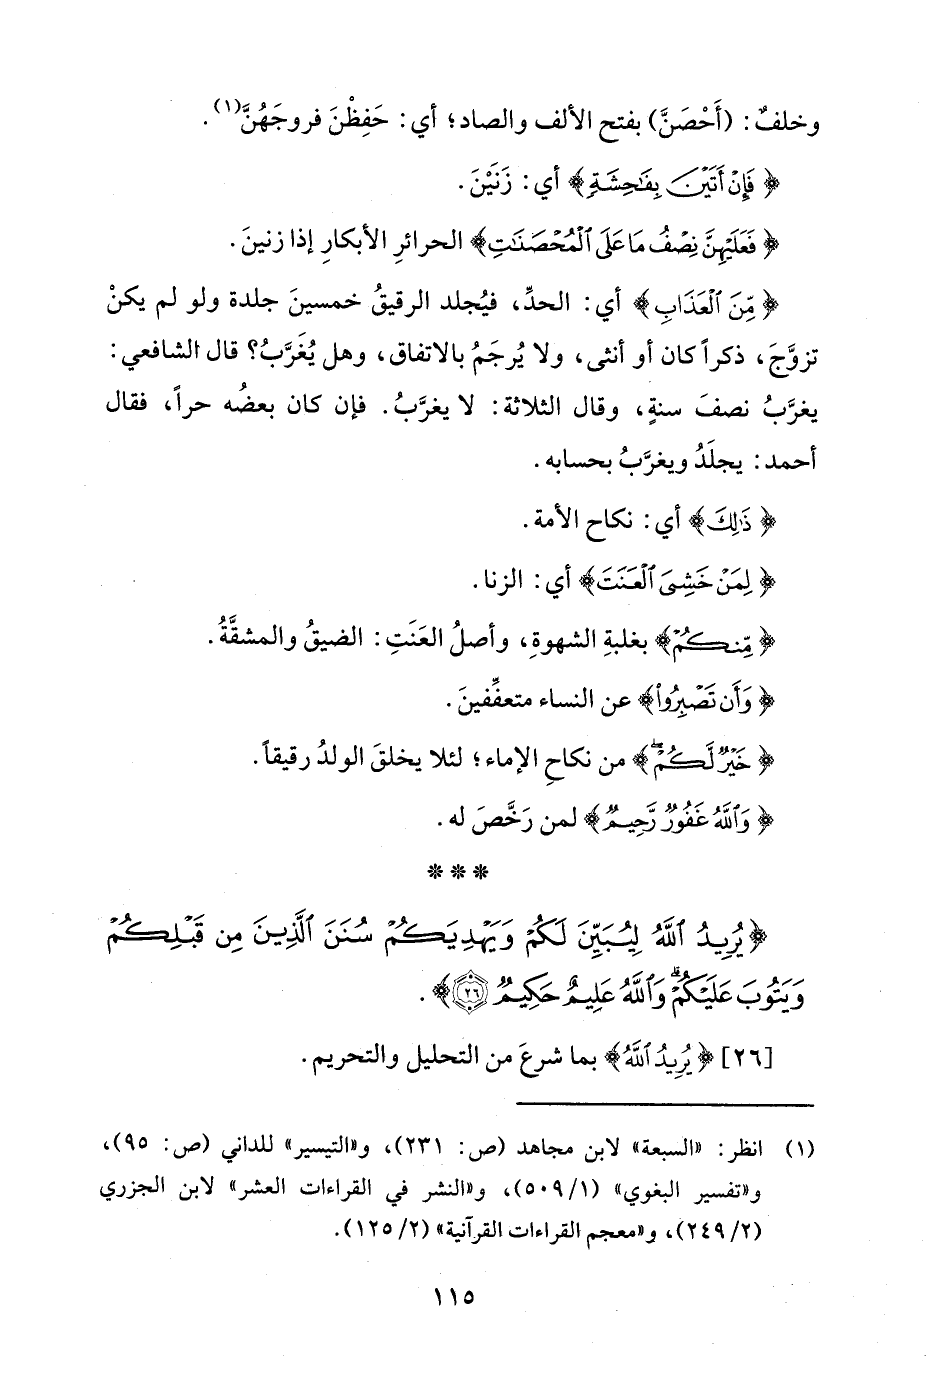 وخلفٌ: (أَحْصَنَّ) بفتح الألف والصاد؛ أي: حَفِظْنَ فروجَهُنَّ(١).
﴿فَإِنْ أَتَيْنَ بِفَٰحِشَةٍ﴾ أي: زَنَيْنَ.
﴿فَعَلَيْهِنَّ نِصْفُ مَا عَلَى ٱلْمُحْصَنَٰتِ﴾ الحرائرِ الأبكارِ إذا زنينَ.
﴿مِّنَ ٱلْعَذَابِ﴾ أي: الحدِّ، فيُجلد الرقيقُ خمسينَ جلدة ولو لم يكنْ
تزوَّجَ، ذكراً كان أو أنثى، ولا يُرجَمُ بالاتفاق، وهل يُغَرَّبُ؟ قال الشافعي:
يغرَّبُ نصفَ سنةٍ، وقال الثلاثة: لا يغرَّبُ. فإن كان بعضُه حراً، فقال
أحمد: يجلَدُ ويغرَّبُ بحسابه.
﴿ذَٰلِكَ﴾ أي: نكاح الأمة.
﴿لِمَنْ خَشِىَ ٱلْعَنَتَ﴾ أي: الزنا.
﴿مِنكُمْ﴾ بغلبةِ الشهوةِ، وأصلُ العَنَتِ: الضيقُ والمشقَّةُ.
﴿وَأَن تَصْبِرُوا۟﴾ عن النساء متعفِّفينَ.
﴿خَيْرٌ لَّكُمْ ۗ﴾ من نكاحِ الإماء؛ لئلا يخلقَ الولدُ رقيقاً.
﴿وَٱللَّهُ غَفُورٌ رَّحِيمٌ﴾ لمن رَخَّصَ له.
***
﴿يُرِيدُ ٱللَّهُ لِيُبَيِّنَ لَكُمْ وَيَهْدِيَكُمْ سُنَنَ ٱلَّذِينَ مِن قَبْلِكُمْ
وَيَتُوبَ عَلَيْكُمْ ۗ وَٱللَّهُ عَلِيمٌ حَكِيمٌ ٢٦﴾.
[٢٦] ﴿يُرِيدُ ٱللَّهُ﴾ بما شرعَ من التحليل والتحريم.
(١) انظر: «السبعة» لابن مجاهد (ص: ٢٣١)، و«التيسير» للداني (ص: ٩٥)،
و«تفسير البغوي» (١/ ٥٠٩)، و«النشر في القراءات العشر» لابن الجزري
(٢/ ٢٤٩)، و«معجم القراءات القرآنية» (٢/ ١٢٥).
١١٥